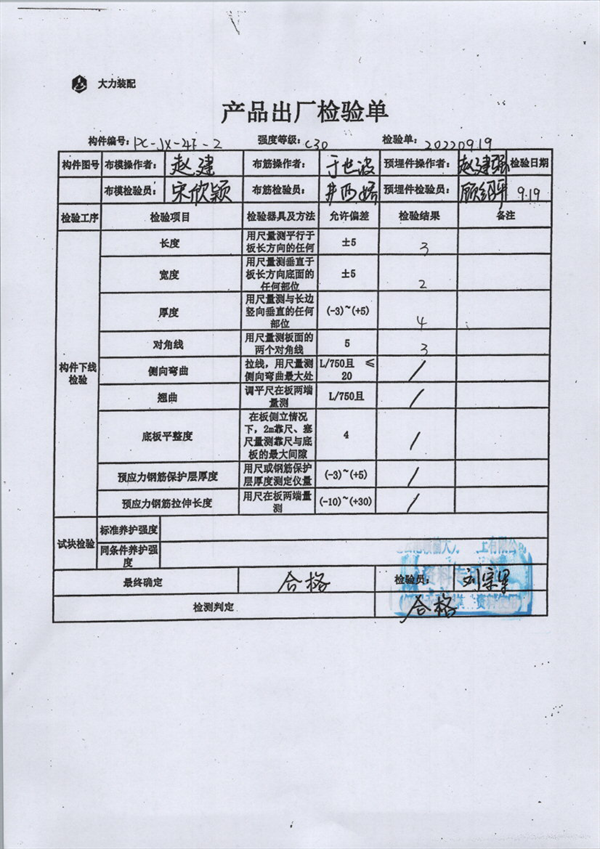 大力装配
产品出厂检验单
构件编号: PC-JX-4F-2 强度等级: C30 检验单: 20220919
构件图号 布模操作者: 赵建 布筋操作者: 于世波 预埋件操作者: 赵建强 检验日期
布模检验员: 宋欣颖 布筋检验员: 预埋件检验员: 9.19
检验工序 检验项目 检验器具及方法 允许偏差 检验结果 备注
构件下线
检验
长度 用尺量测平行于
板长方向的任何 ±5 3
宽度 用尺量测垂直于
板长方向底面的
任何部位 ±5 2
厚度 用尺量测与长边
竖向垂直的任何
部位 (-3)~(+5) 4
对角线 用尺量测板面的
两个对角线 5 3
侧向弯曲 拉线，用尺量测
侧向弯曲最大处 L/750且 ≤
20 /
翘曲 调平尺在板两端
量测 L/750且 /
底板平整度 在板侧立情况
下，2m靠尺、塞
尺量测靠尺与底
板的最大间隙 4 /
预应力钢筋保护层厚度 用尺或钢筋保护
层厚度测定仪量 (-3)~(+5) /
预应力钢筋拉伸长度 用尺在板两端量
测 (-10)~(+30) /
试块检验 标准养护强度
同条件养护强
度
最终确定 合格 检验员:
检测判定 合格